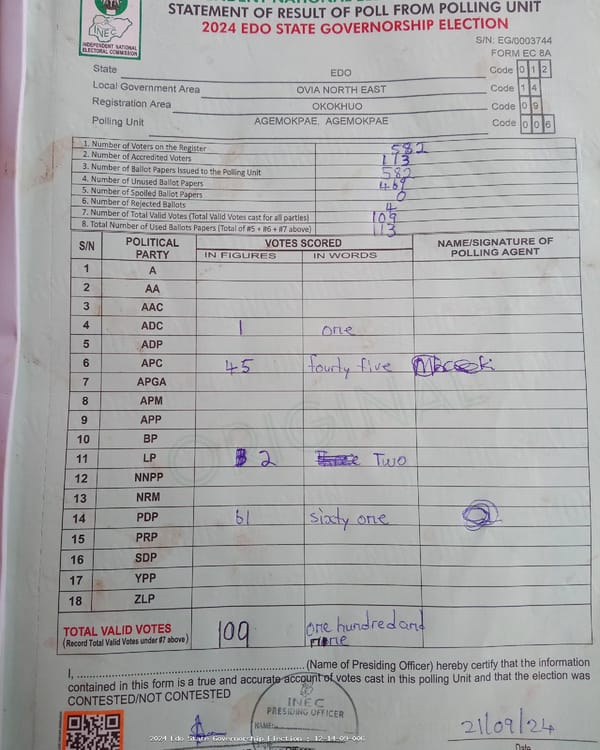 STATEMENT OF RESULT OF POLL FROM POLLING UNIT
2024 EDO STATE GOVERNORSHIP ELECTION
INEC
INDEPENDENT NATIONAL
ELECTORAL COMMISSION
S/N: EG/0003744
FORM EC 8A
State EDO Code 0 1 2
Local Government Area OVIA NORTH EAST Code 1 4
Registration Area OKOKHUO Code 0 9
Polling Unit AGEMOKPAE, AGEMOKPAE Code 0 0 6
1. Number of Voters on the Register 582
2. Number of Accredited Voters 113
3. Number of Ballot Papers Issued to the Polling Unit 582
4. Number of Unused Ballot Papers 469
5. Number of Spoiled Ballot Papers 0
6. Number of Rejected Ballots 4
7. Number of Total Valid Votes (Total Valid Votes cast for all parties) 109
8. Total Number of Used Ballots Papers (Total of #5 + #6 + #7 above) 113
S/N POLITICAL PARTY VOTES SCORED NAME/SIGNATURE OF POLLING AGENT
IN FIGURES IN WORDS
1 A
2 AA
3 AAC
4 ADC 1 one
5 ADP
6 APC 45 fourty five
7 APGA
8 APM
9 APP
10 BP
11 LP 2 Two
12 NNPP
13 NRM
14 PDP 61 sixty one
15 PRP
16 SDP
17 YPP
18 ZLP
TOTAL VALID VOTES 109 one hundred and
(Record Total Valid Votes under #7 above) nine
I, (Name of Presiding Officer) hereby certify that the information
contained in this form is a true and accurate account of votes cast in this polling Unit and that the election was
CONTESTED/NOT CONTESTED
INEC
PRESIDING OFFICER
NAME:
21/09/24
2024 Edo State Governorship Election : 12-14-09-006
Date